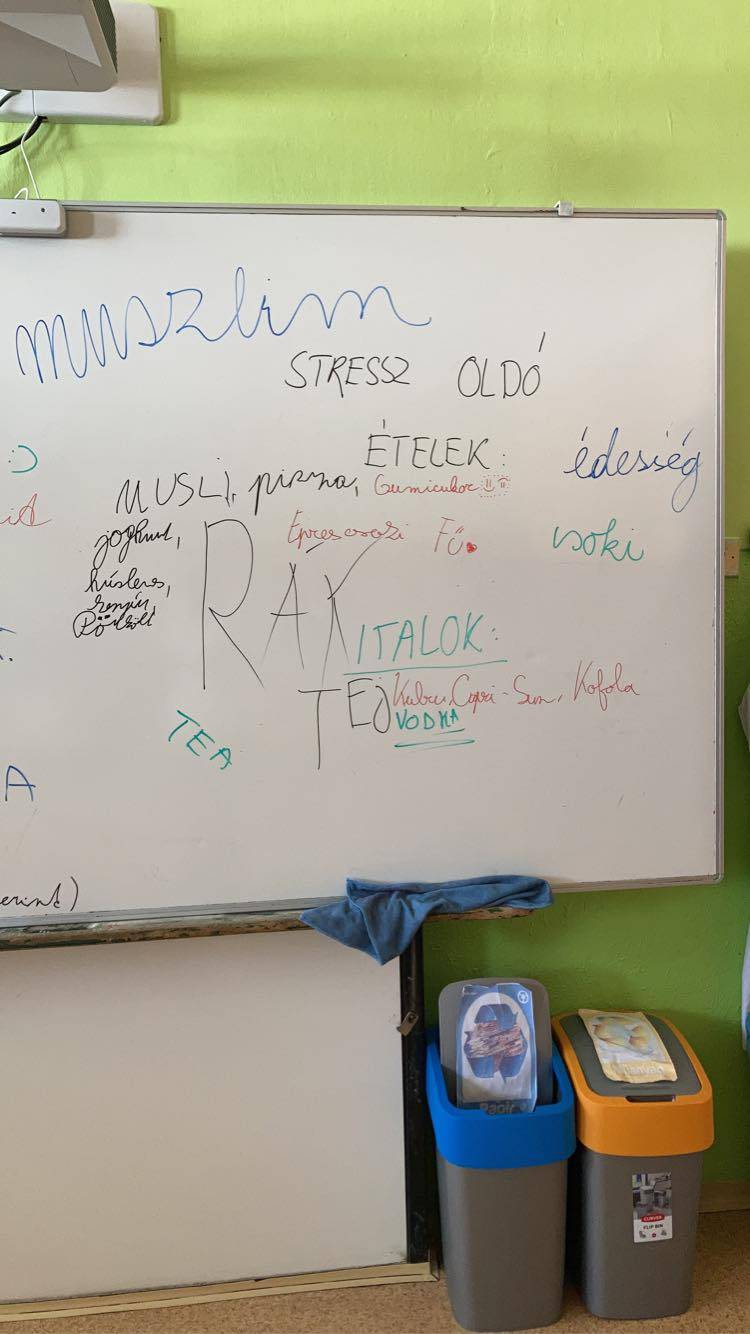 muszlim
STRESSZ OLDÓ
ÉTELEK: édesség
MUSLI, pizza, Gumicukor
joghurt, Epres csoki Fű csoki
húsleves,
RAK
ITALOK:
TEJ Kubu, Capri-Sun, Kofola
VODKA
TEA
A
erint)
Papír
CURVER
FLIP BIN